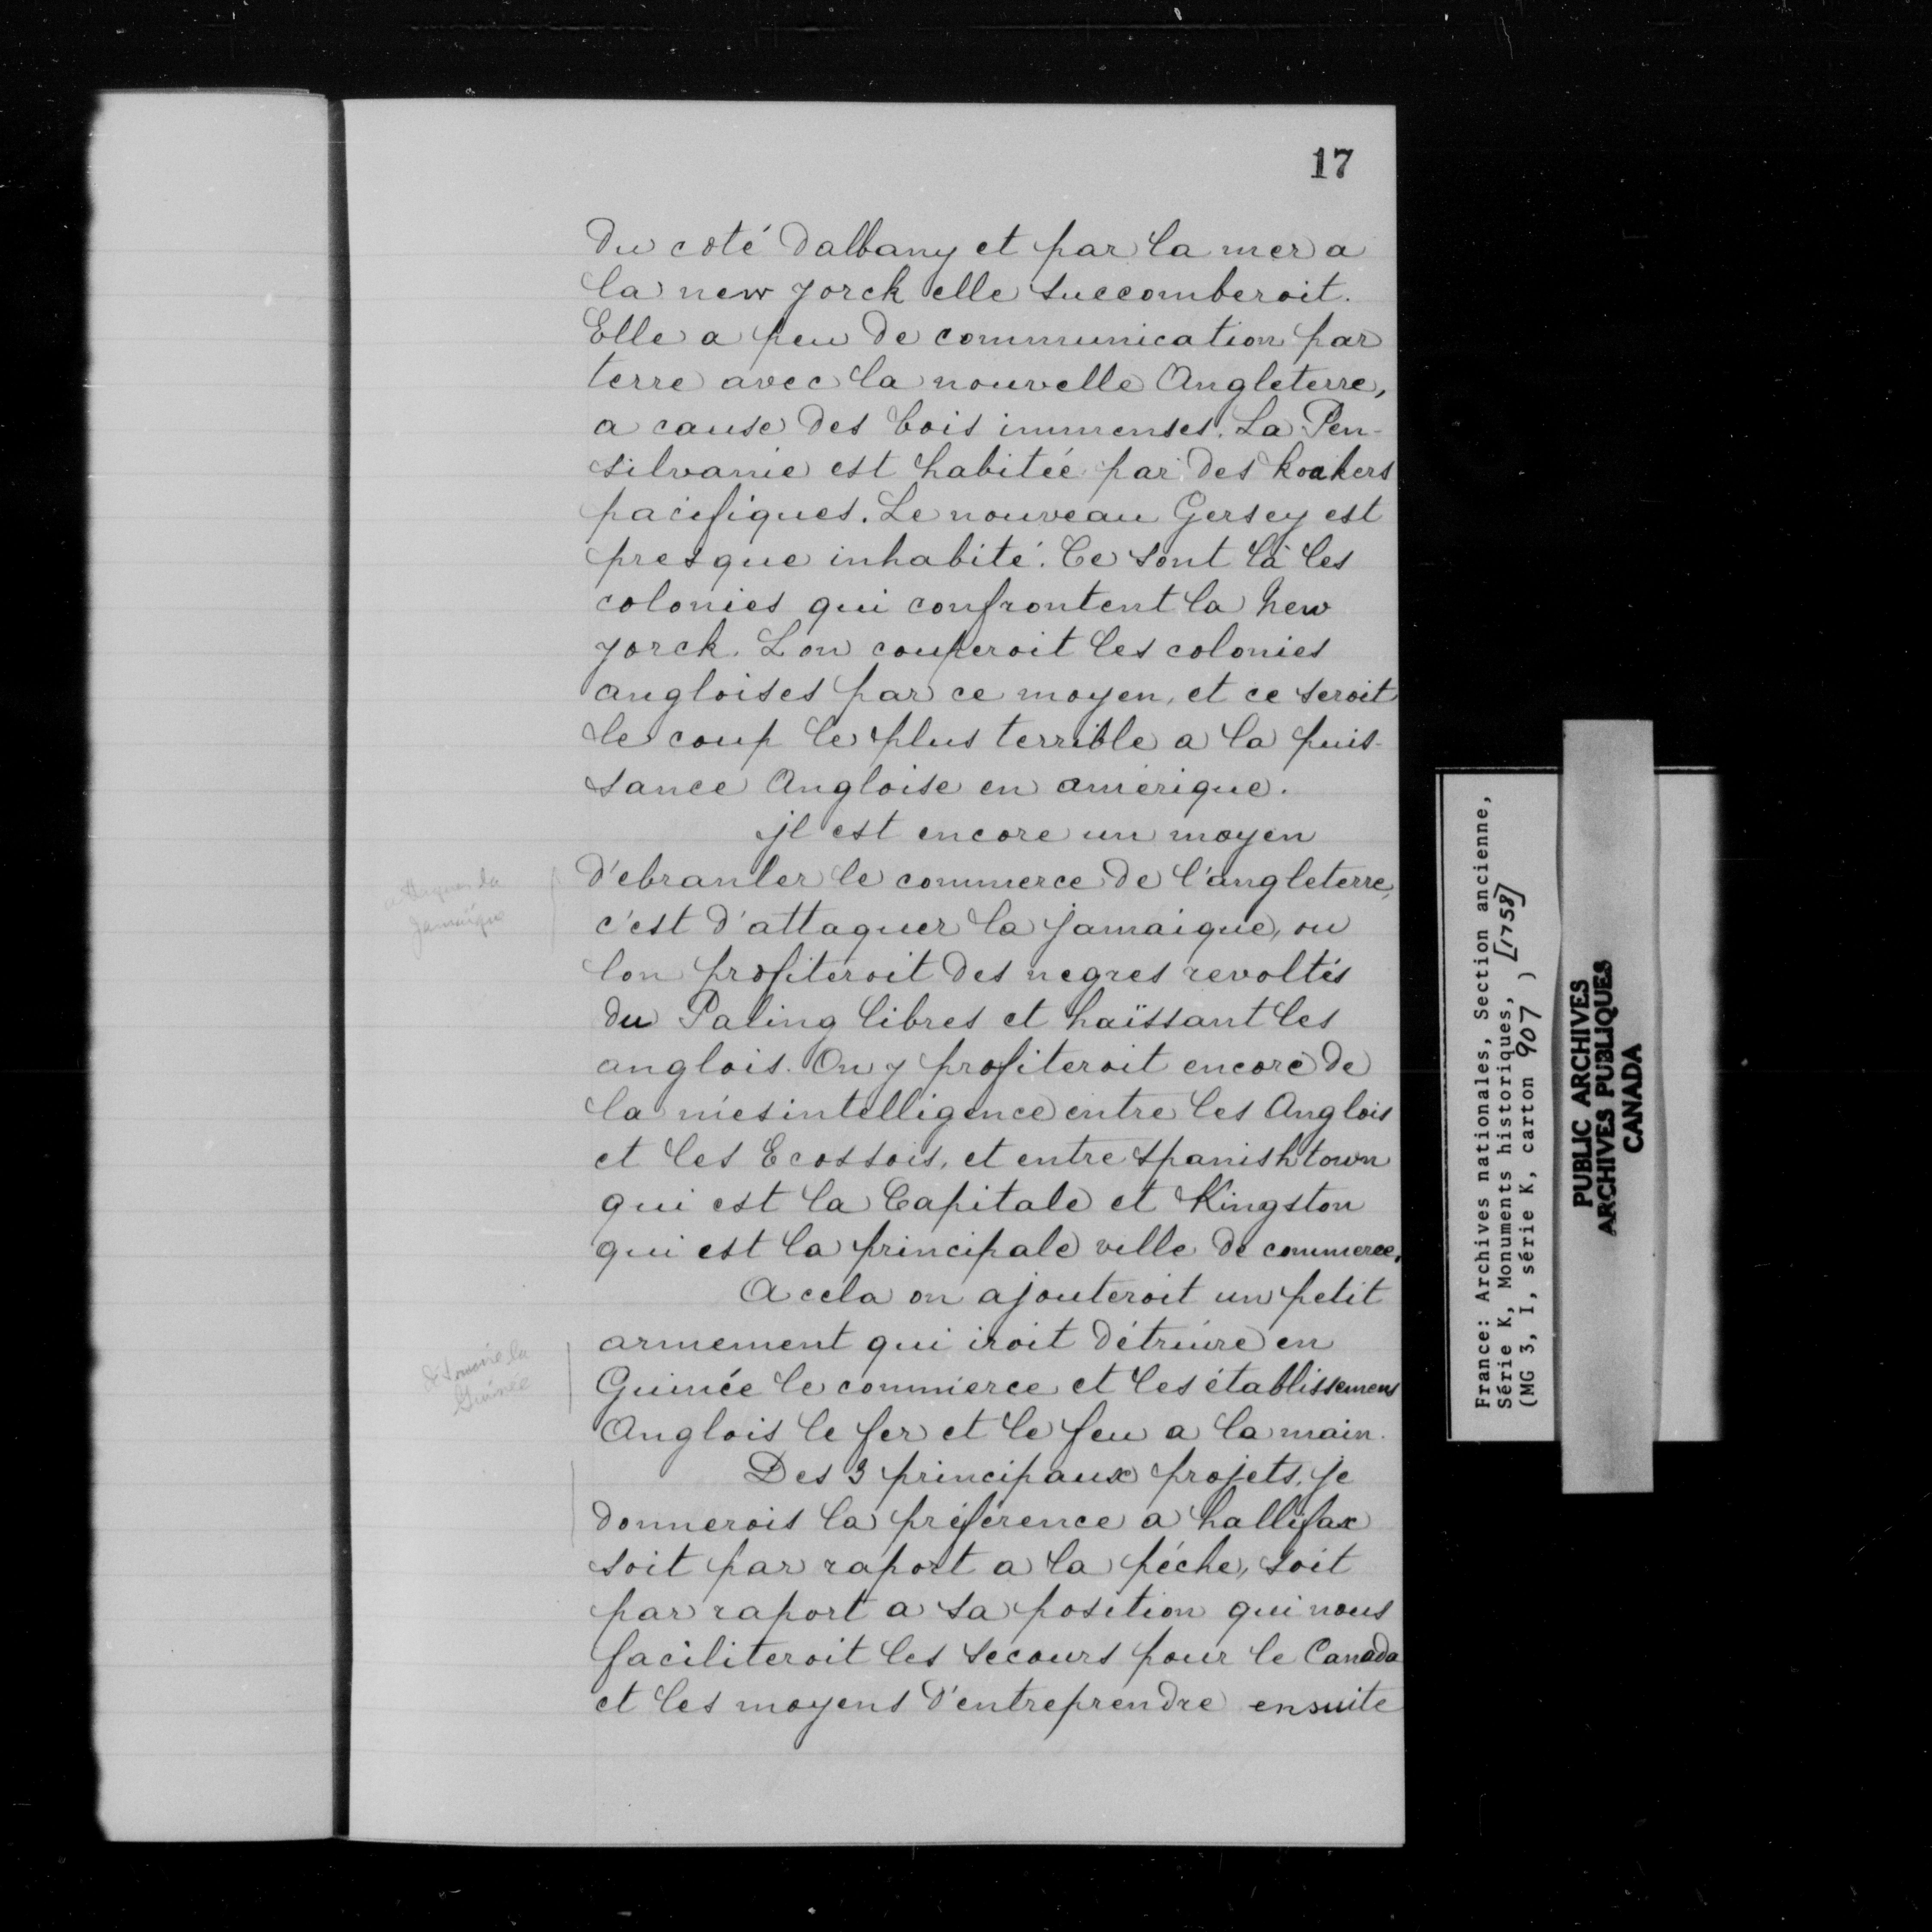 17
du coté dalbany et par la mer a
la new yorck elle succomberoit.
Elle a peu de communication par
terre avec la nouvelle Angleterre,
a cause des bois immenses. La Pen-
silvanie est habitée par des koakers
pacifiques. Le nouveau Gersey est
presque inhabité. Ce sont là les
colonies qui confrontent la New
yorck. Lon couperoit les colonies
angloises par ce moyen, et ce seroit
le coup le plus terrible a la puis-
sance Angloise en amérique.
jl est encore un moyen
d'ebranler le commerce de l'angleterre,
c'est d'attaquer la jamaique, ou
lon profiteroit des negres revoltés
du Paling libres et haïssant les
anglois. On y profiteroit encore de
la mésintelligence entre les Anglois
et les Ecossois, et entre Spanishtown
qui est la Capitale et Kingston
qui est la principale ville de commerce.
A cela on ajouteroit un petit
armement qui iroit détruire en
Guinée le commerce et les établissemens
Anglois le fer et le feu a la main.
Des 3 principaux projets, je
donnerois la préférence a hallifax
soit par raport a la pêche, soit
par raport a sa position qui nous
faciliteroit les secours pour le Canada
et les moyens d'entreprendre ensuite
attaquer la
Jamaïque
la
Guinée
France: Archives nationales, Section ancienne,
Série K, Monuments historiques, [1758]
(MG 3, I, série K, carton 907 )
PUBLIC ARCHIVES
ARCHIVES PUBLIQUES
CANADA